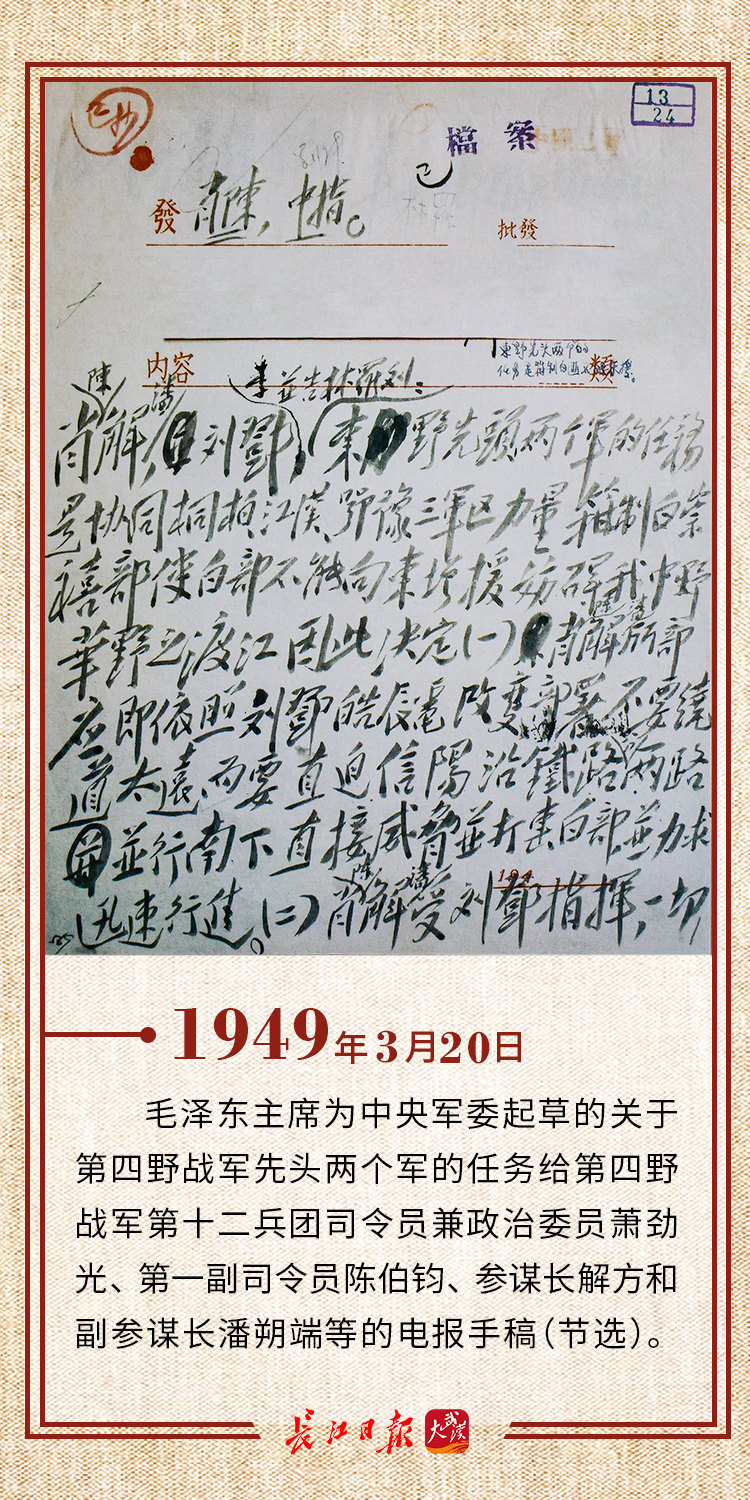 已抄
檔案
13
24
發 肖陳,中指。
批發
内容
類
李並告林羅刘:
東野先头两个的
陳 潘
肖解,刘鄧,東野先頭两個軍的任務
是协同桐柏江漢鄂豫三軍区力量箝制白崇
禧部使白部不能向東增援妨碍我中野
華野之渡江因此决定(一)肖陳解潘所部
应即依照刘鄧皓辰電改變部署不要繞
道太遠而要直迫信陽沿鐵路两路
並行南下直接威脅並打击白部並力求
迅速行進。(二)肖陳解潘受刘鄧指揮,一切
1949年3月20日
毛泽东主席为中央军委起草的关于
第四野战军先头两个军的任务给第四野
战军第十二兵团司令员兼政治委员萧劲
光、第一副司令员陈伯钧、参谋长解方和
副参谋长潘朔端等的电报手稿(节选)。
长江日报 大武汉